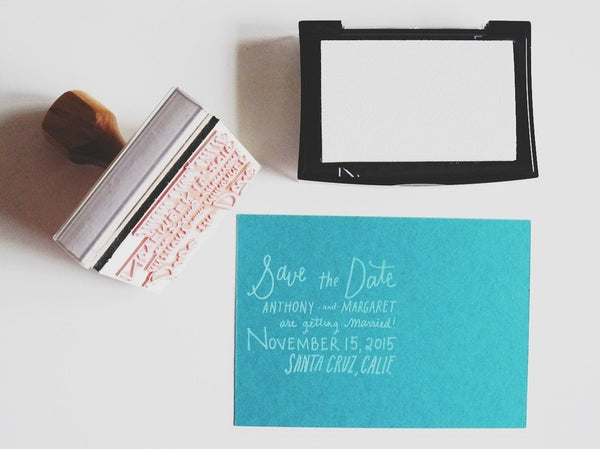 Save the Date
ANTHONY and MARGARET
are getting married!
NOVEMBER 15, 2015
SANTA CRUZ, CALIF.